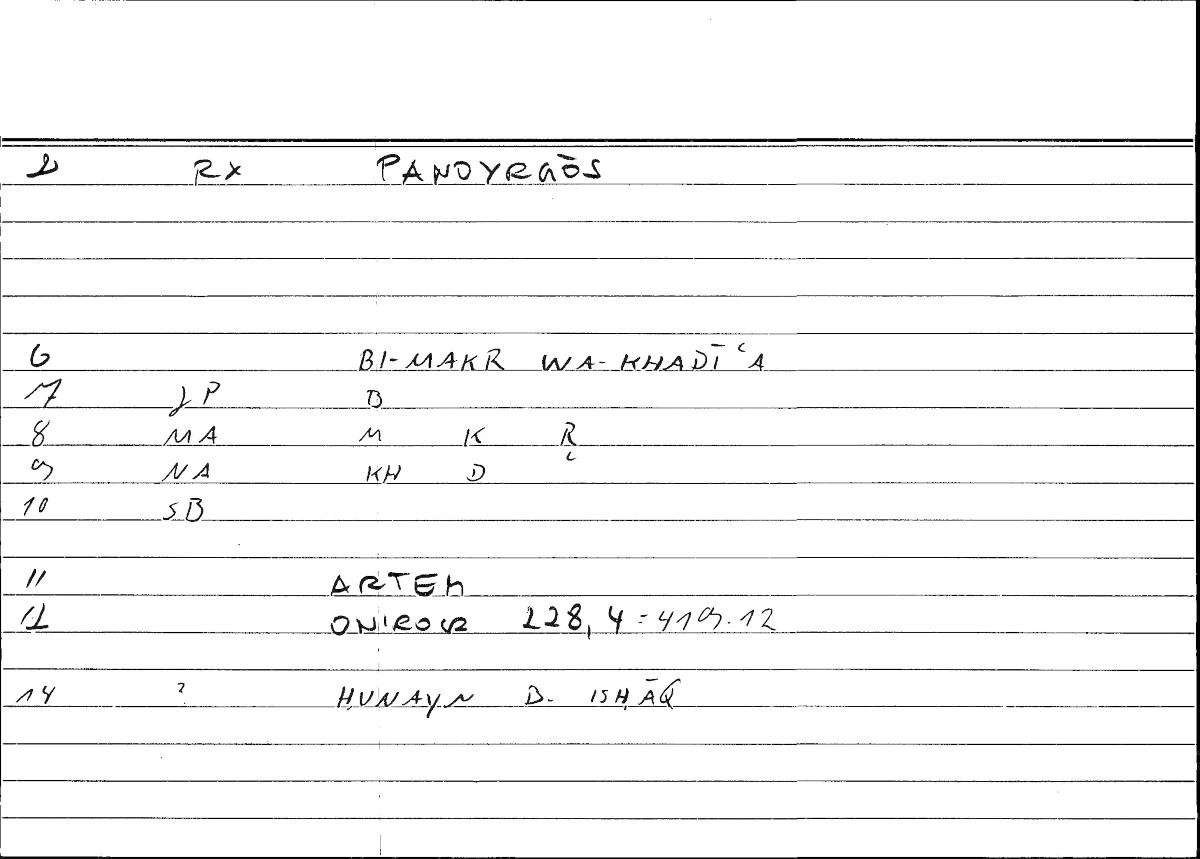 2 RX PANOYRGŌS
6 BI-MAKR WA-KHADĪʿA
7 JP B
8 MA M K R
9 NA KH D ʿ
10 SB
11 ARTEM
12 ONIROCR 228, 4 = 419.12
14 ? ḤUNAYN B. ISḤĀQ